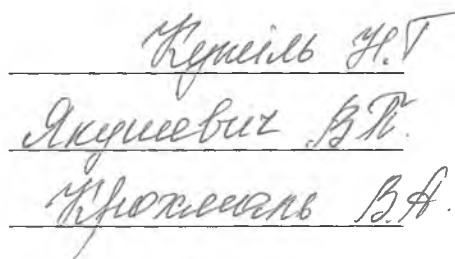 Кужіль Н.Г
Якушевич В.П.
Крохмаль В.А.